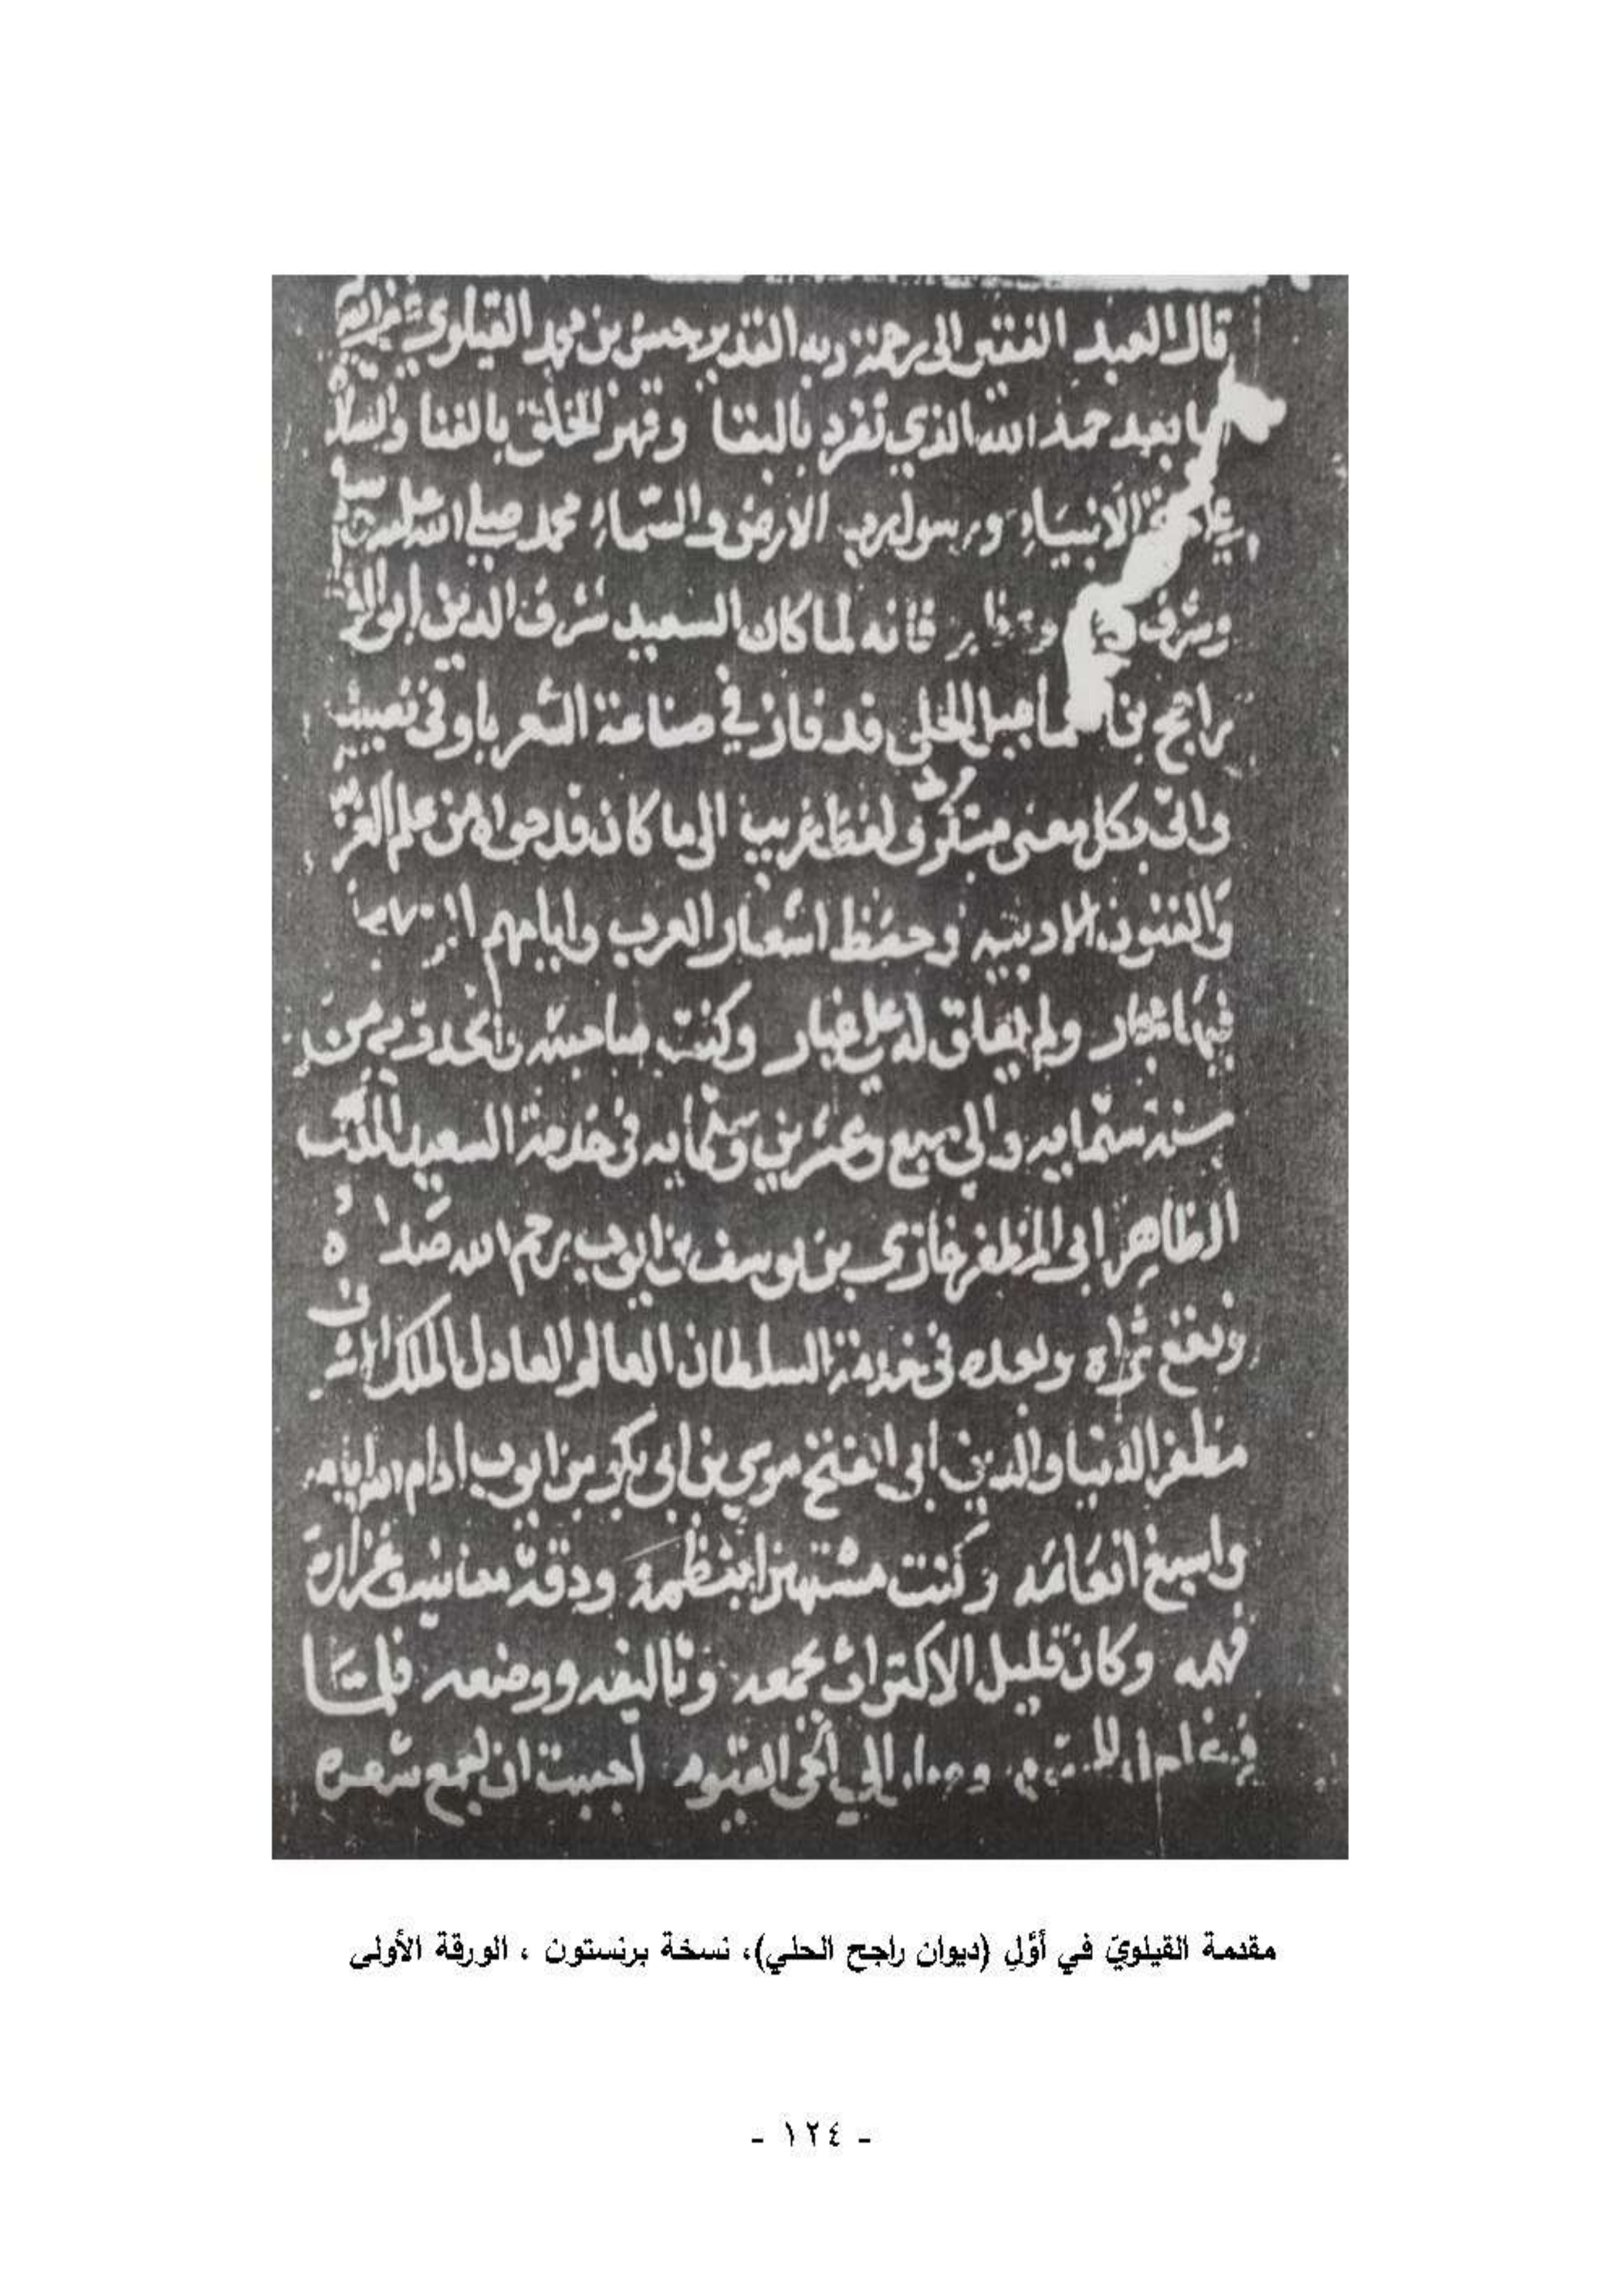 قال العبد الفقير الى رحمة ربه القدير حسن بن محمد القيلوي غفر الله
بعد حمد الله الذي تفرد بالبقا وقهر الخلق بالفنا والسلام
الانبياء ورسول رب الارض والسماء محمد صلى الله عليه
وشرف فانه لما كان السعيد شرف الدين ابو الوفا
راجح بن اسماعيل الحلي قد فاز في صناعة الشعر باوفى نصيب
واتى بكل معنى مبتكر ولفظ غريب الى ما كان قد حواه من علم
والفنون الادبية وحفظ اشعار العرب وايامهم
فيها ولم له على غبار وكنت صاحبته من
سنه ستمايه والى سبع وعشرين وستمايه في خدمة السعيد الملك
الظاهر ابي المظفر غازي بن يوسف بن ايوب رحم الله صداه
ونقع ثراه وبعده في خدمة السلطان العالم العادل الملك الاشرف
مظفر الدنيا والدين ابي الفتح موسى بن ابي بكر بن ايوب ادام الله ايامه
واسبغ انعامه وكنت مشتهرا بنظمه ودقة معانيه وغزارة
فهمه وكان قليل الاكتراث بجمعه وتاليفه ووضعه فلما
الى الحي القيوم احببت ان اجمع شعره
مقدمة القيلويّ في أوّلِ (ديوان راجح الحلي)، نسخة برنستون ، الورقة الأولى
- ١٢٤ -